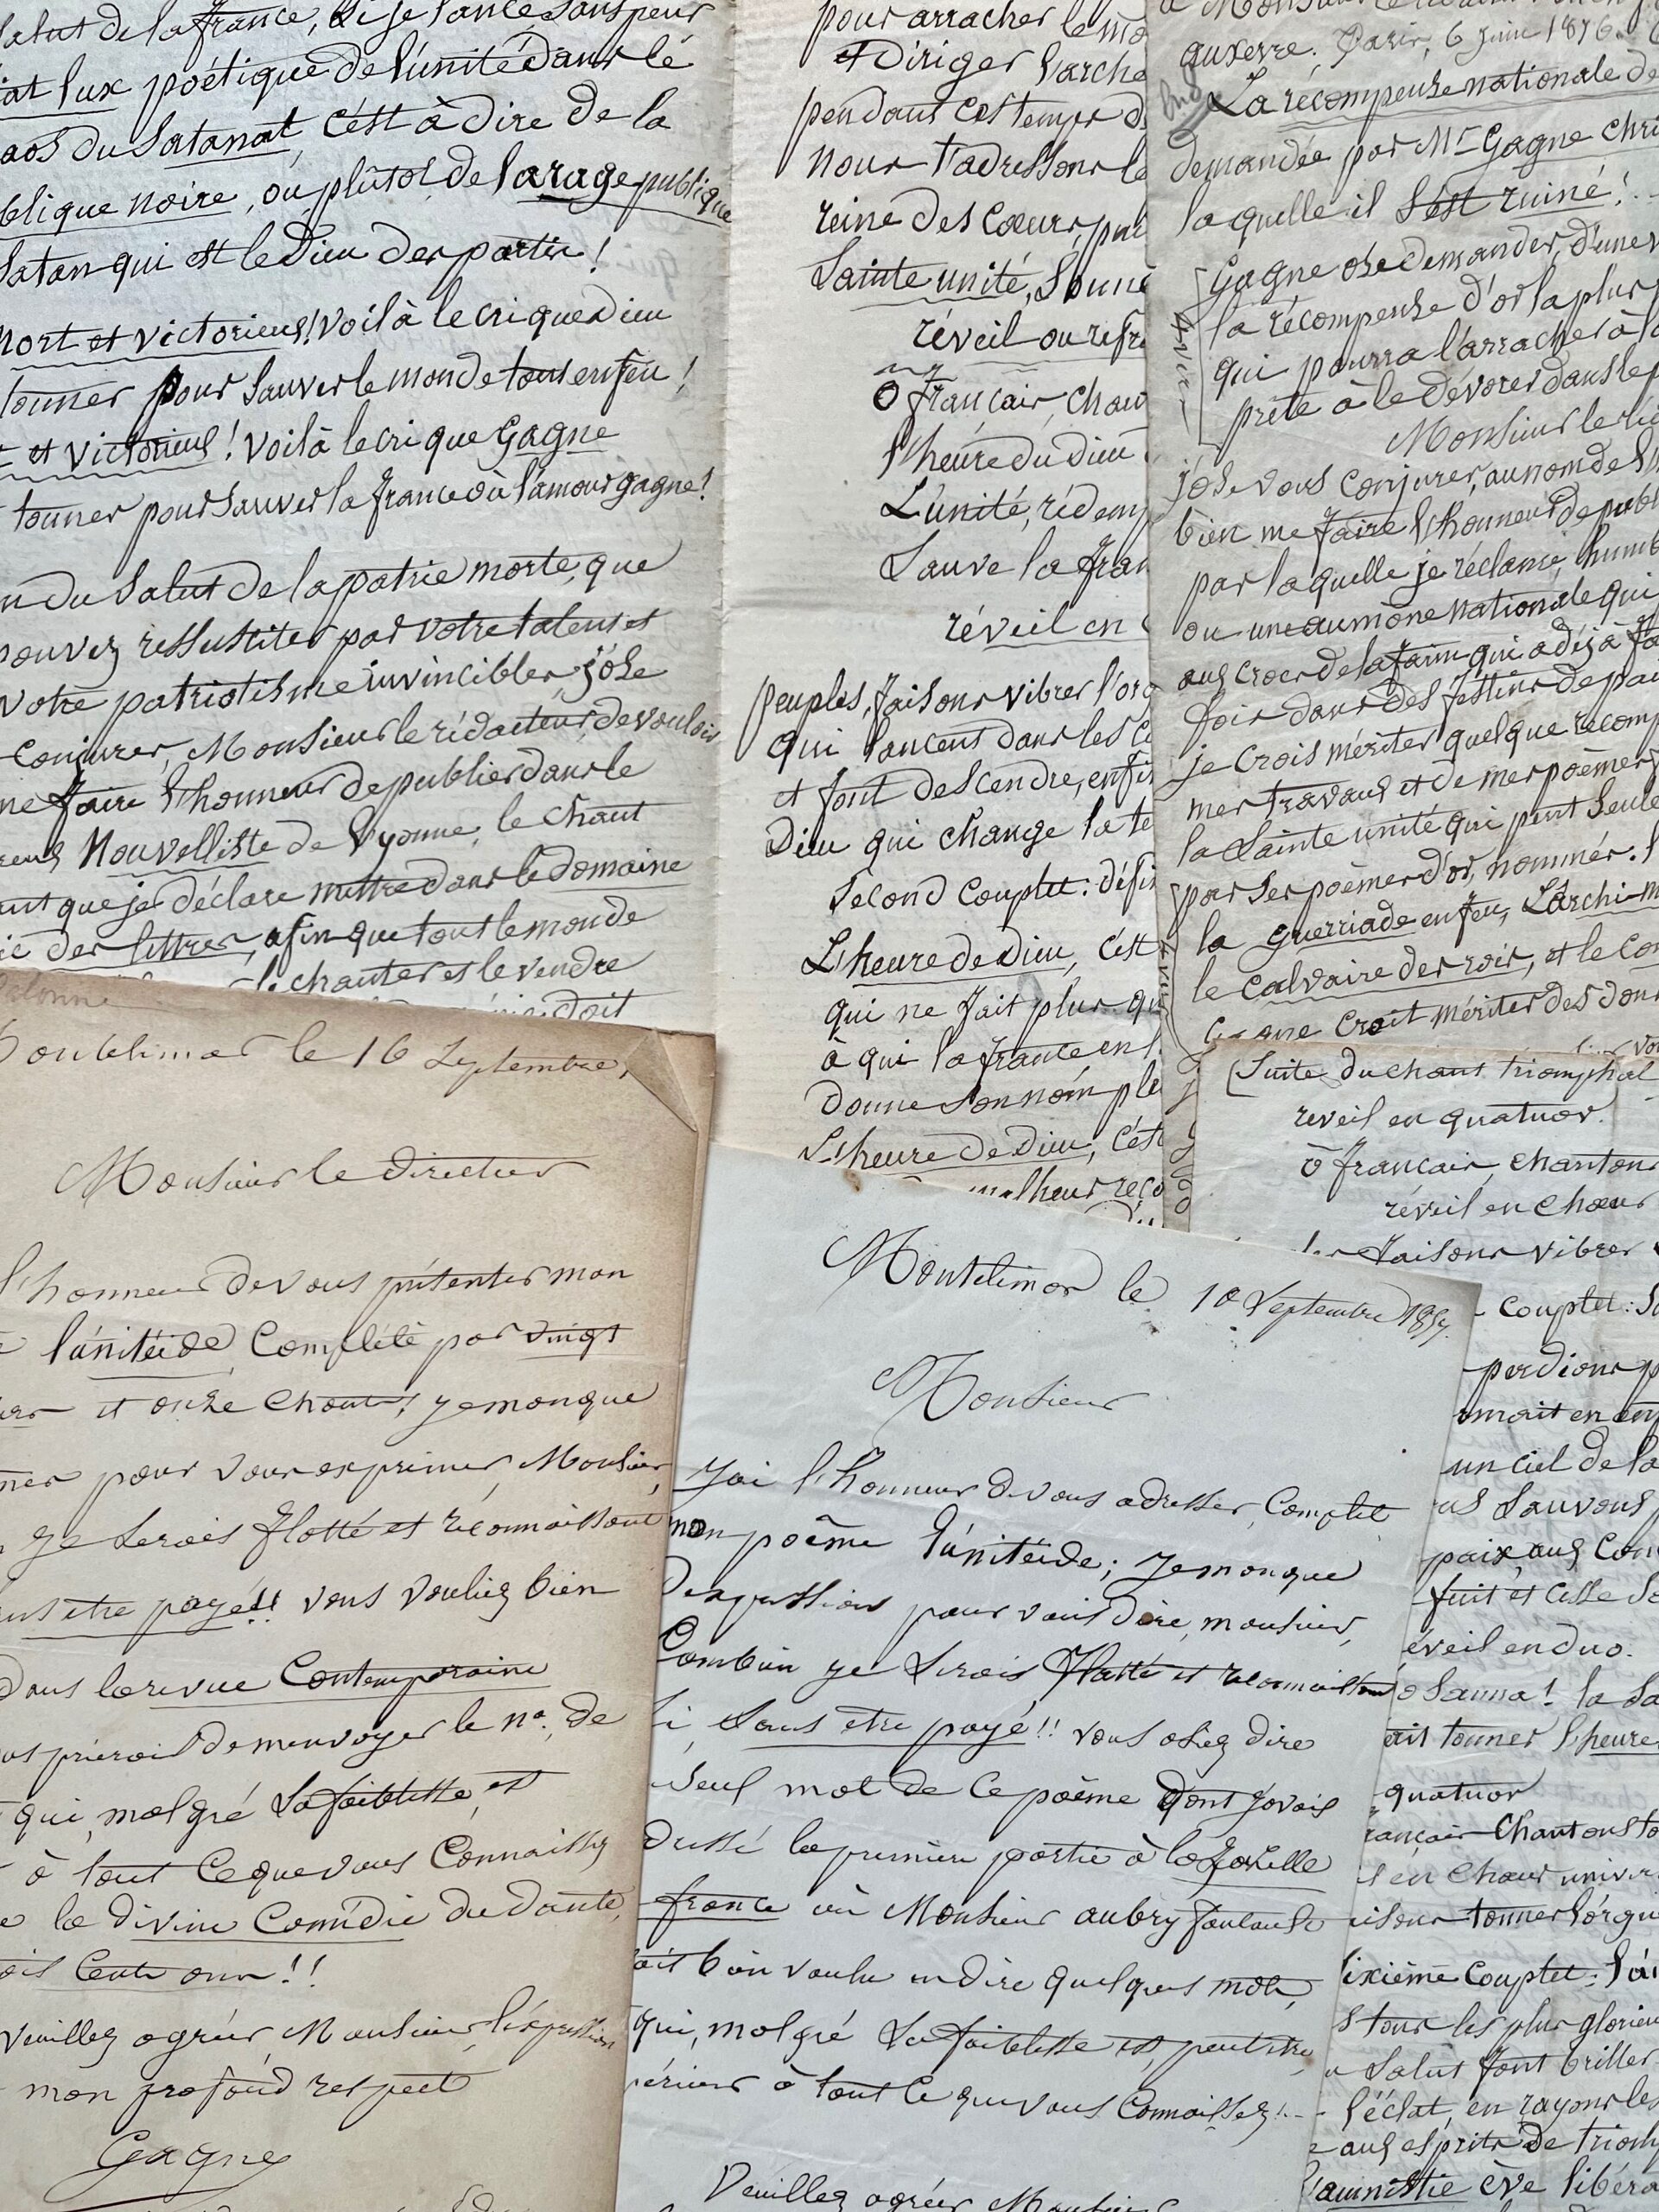 salut de la france, si je lance sans peur
fiat lux poétique de l'unité dans le
aos du Satanat, c'est à dire de la
blique noire, ou plûtot de la rage publique
Satan qui est le Dieu des partis!
Mort et victorieux! voilà le cri que Dieu
tonner pour Sauver le monde tout en feu!
et victorieux! voilà le cri que Gagne
tonner pour Sauver la france où l'amour gagne!
du Salut de la patrie morte, que
pouvez ressusciter par votre talent et
votre patriotisme invincibles, j'ose
conjurer, Monsieur le rédacteur, de vouloir
me faire l'honneur de publier dans le
Nouvelliste de l'yonne, le chant
que je déclare mettre dans le domaine
des lettres, afin que tout le monde
chanter et le vendre
doit
pour arracher le mo
et Diriger l'arche
pendant ces temps d
nous t'adressons le
reine des Coeurs, pur
Sainte unité, Sonne
réveil ou refr
ô français, chan
l'heure du Dieu
L'unité, rédemp
Sauve la fran
réveil en
peuples, faisons vibrer l'org
qui lancent dans les c
et font descendre, enfin
Dieu qui change la te
Second couplet: défin
L'heure de Dieu, c'est
qui ne fait plus qu
à qui la france en
donne son nom ple
L'heure de Dieu, c'est
malheur reço
auxerre. Paris, 6 juin 1876.
La récompense nationale de
demandée par Mr Gagne chri
laquelle il s'est ruiné!
Gagne ose demander, d'une v
la récompense d'or la plus
qui pourra l'arracher à la
prête à le dévorer dans le p
Monsieur le ré
j'ose vous conjurer, au nom de l'
bien me faire l'honneur de publ
par laquelle je réclame, humb
ou une aumône nationale qui
aux crocs de la faim qui a déjà fa
fois dans des festins de pai
je crois mériter quelque récomp
mes travaux et de mes poèmes
la Sainte unité qui peut seule
par ses poèmes d'or, nommés: l
la guerriade en feu, L'archi-m
le calvaire des rois, et le Con
Gagne croit mériter des don
(Suite du chant triomphal
reveil en quatuor.
ô français, chantons
réveil en choeur
faisons vibrer
couplet: Sa
perdions p
un ciel de la
Sauvons
paix, aux com
fuit et cesse so
éveil en duo.
osanna! la Sa
tonner l'heure
quatuor
rançais chantons to
en choeur univer
tonner l'orgu
ixième couplet: l'a
tour les plus glorieu
Salut font briller
l'éclat, en rayons les
aux esprits de triomp
l'amnistie ève libéra
Montélimar le 16 Septembre,
Monsieur le directeur
l'honneur de vous présenter mon
l'unitéide complété par vingt
et onze chants! je manque
pour vous exprimer, Monsieur,
je serais flatté et réconnaissant
sans être payé!! vous vouliez bien
dans la revue Contemporaine
prierais de m'envoyer le no. de
qui, malgré sa faiblesse, est
à tout ce que vous connaissez
la divine Comédie du dante,
cents ans!!
Veuillez agréer Monsieur, l'expression
mon profond respect
Gagne
Montélimar le 10 Septembre 1857.
Monsieur
J'ai l'honneur de vous adresser, complet
mon poême l'unitéide; je manque
d'expression pour vous dire, monsieur,
Combien je serais flatté et reconnaissant
si, sans être payé!! vous osiez dire
seul mot de ce poême dont j'avais
dressé la première partie à la gazette
france où Monsieur aubry foulault
bien voulu en dire quelques mots,
qui, malgré sa faiblesse est, peut-être,
périeur à tout ce que vous connaissez!..
Veuillez agréer Monsieur